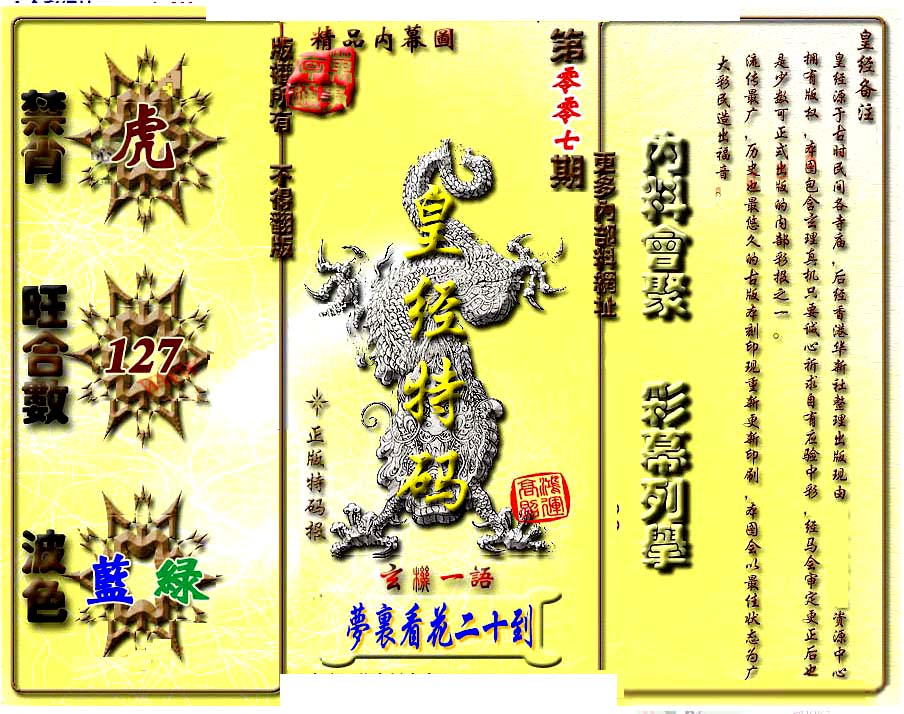 禁肖
虎
旺合數
127
波色
藍 綠
精品内幕圖
版權所有 不得翻版
第零零七期
皇经特码
正版特码报
鴻運高照
玄機一語
夢裏看花二十到
更多内部料網址
内料會聚 彩幕列舉
皇经备注
皇经源于古时民间各寺庙，后经香港华新社整理出版现由 资源中心
拥有版权，本图包含玄理真机只要诚心祈求自有应验中彩，经马会审定更正后也
是少数可正式出版的内部彩报之一。
流传最广，历史也最悠久的古版本刻印现重新更新印刷，本图会以最佳状态为广
大彩民造出福音